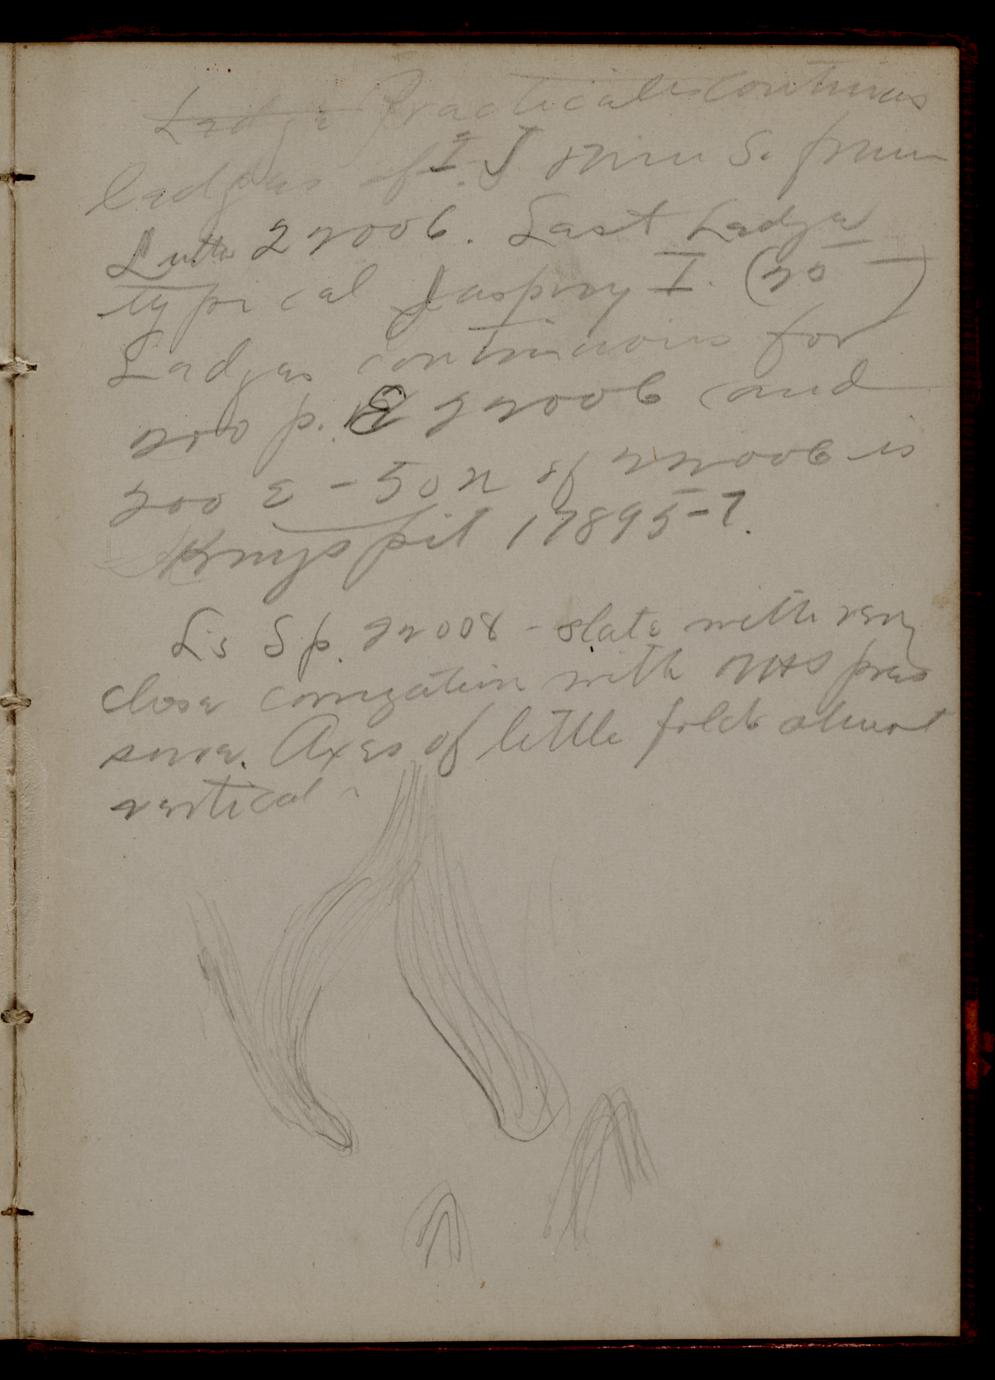 Ledge Practically continuous
ledges of I. J shown S. from
22006. Last Ledge
typical Jaspery I. (20 - )
Ledges continuous for
200 p. E 22006 and
200 E - 50 N of 22006 is
Kings pit 17895-7.
Is Sp. 22008 - slate with very
close corrugation with N + S pres
sure. Axes of little folds almost
vertical -